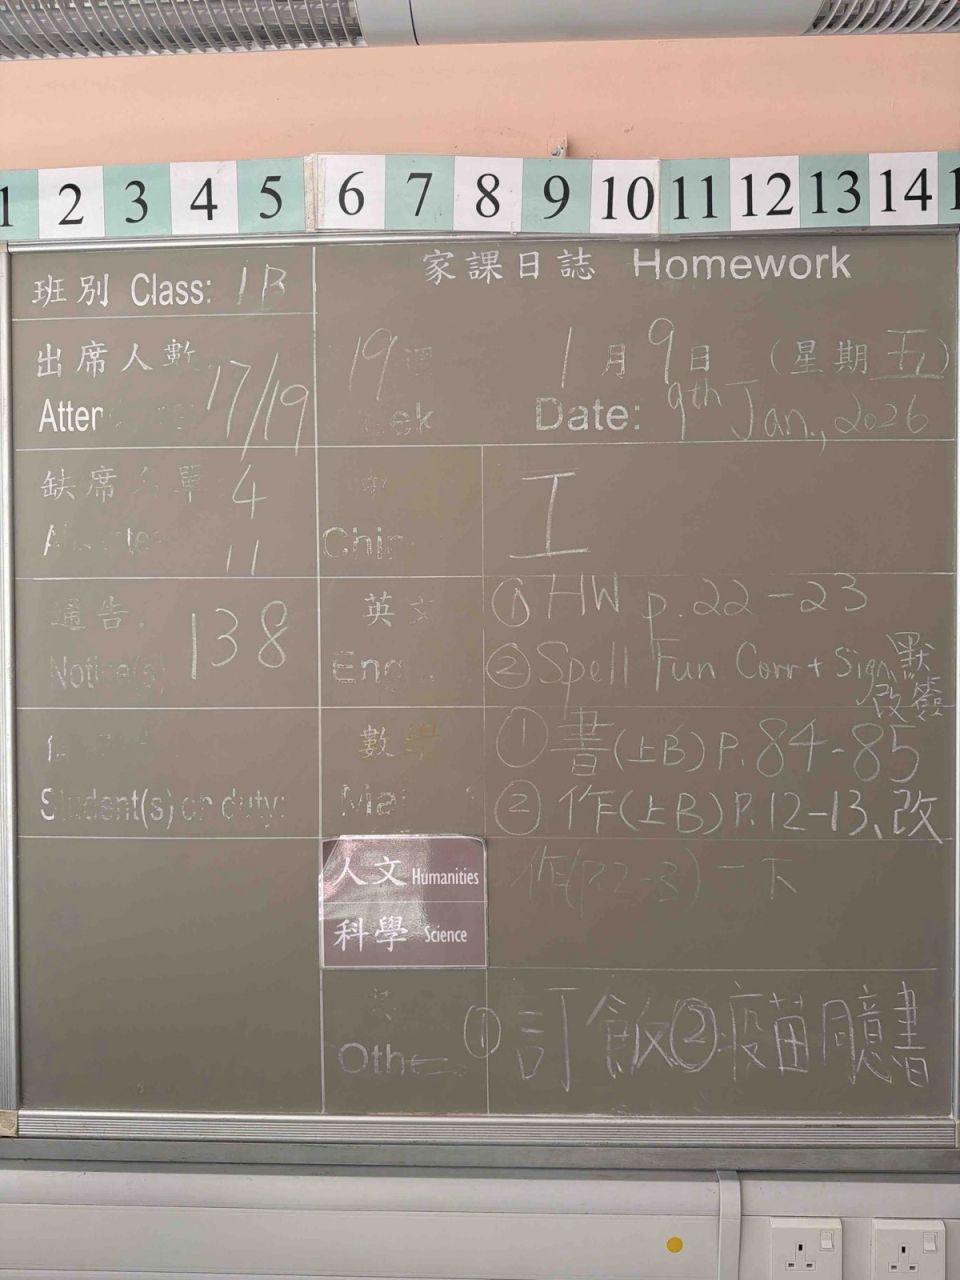 1 2 3 4 5 6 7 8 9 10 11 12 13 14 1
班別 Class: 1B
家課日誌 Homework
出席人數 17/19
19 週
1月9日 (星期五)
Date: 9th Jan., 2026
缺席名單 4
11
工
通告: 138
Notice(s)
英文
① HW p.22-23
② Spell Fun Corr + Sign 默改簽
Student(s) on duty:
數學
① 書(上B) P.84-85
② 作(上B) P.12-13、改
人文 Humanities
科學 Science
作(P.2-3) 一下
① 訂飯 ② 疫苗同意書